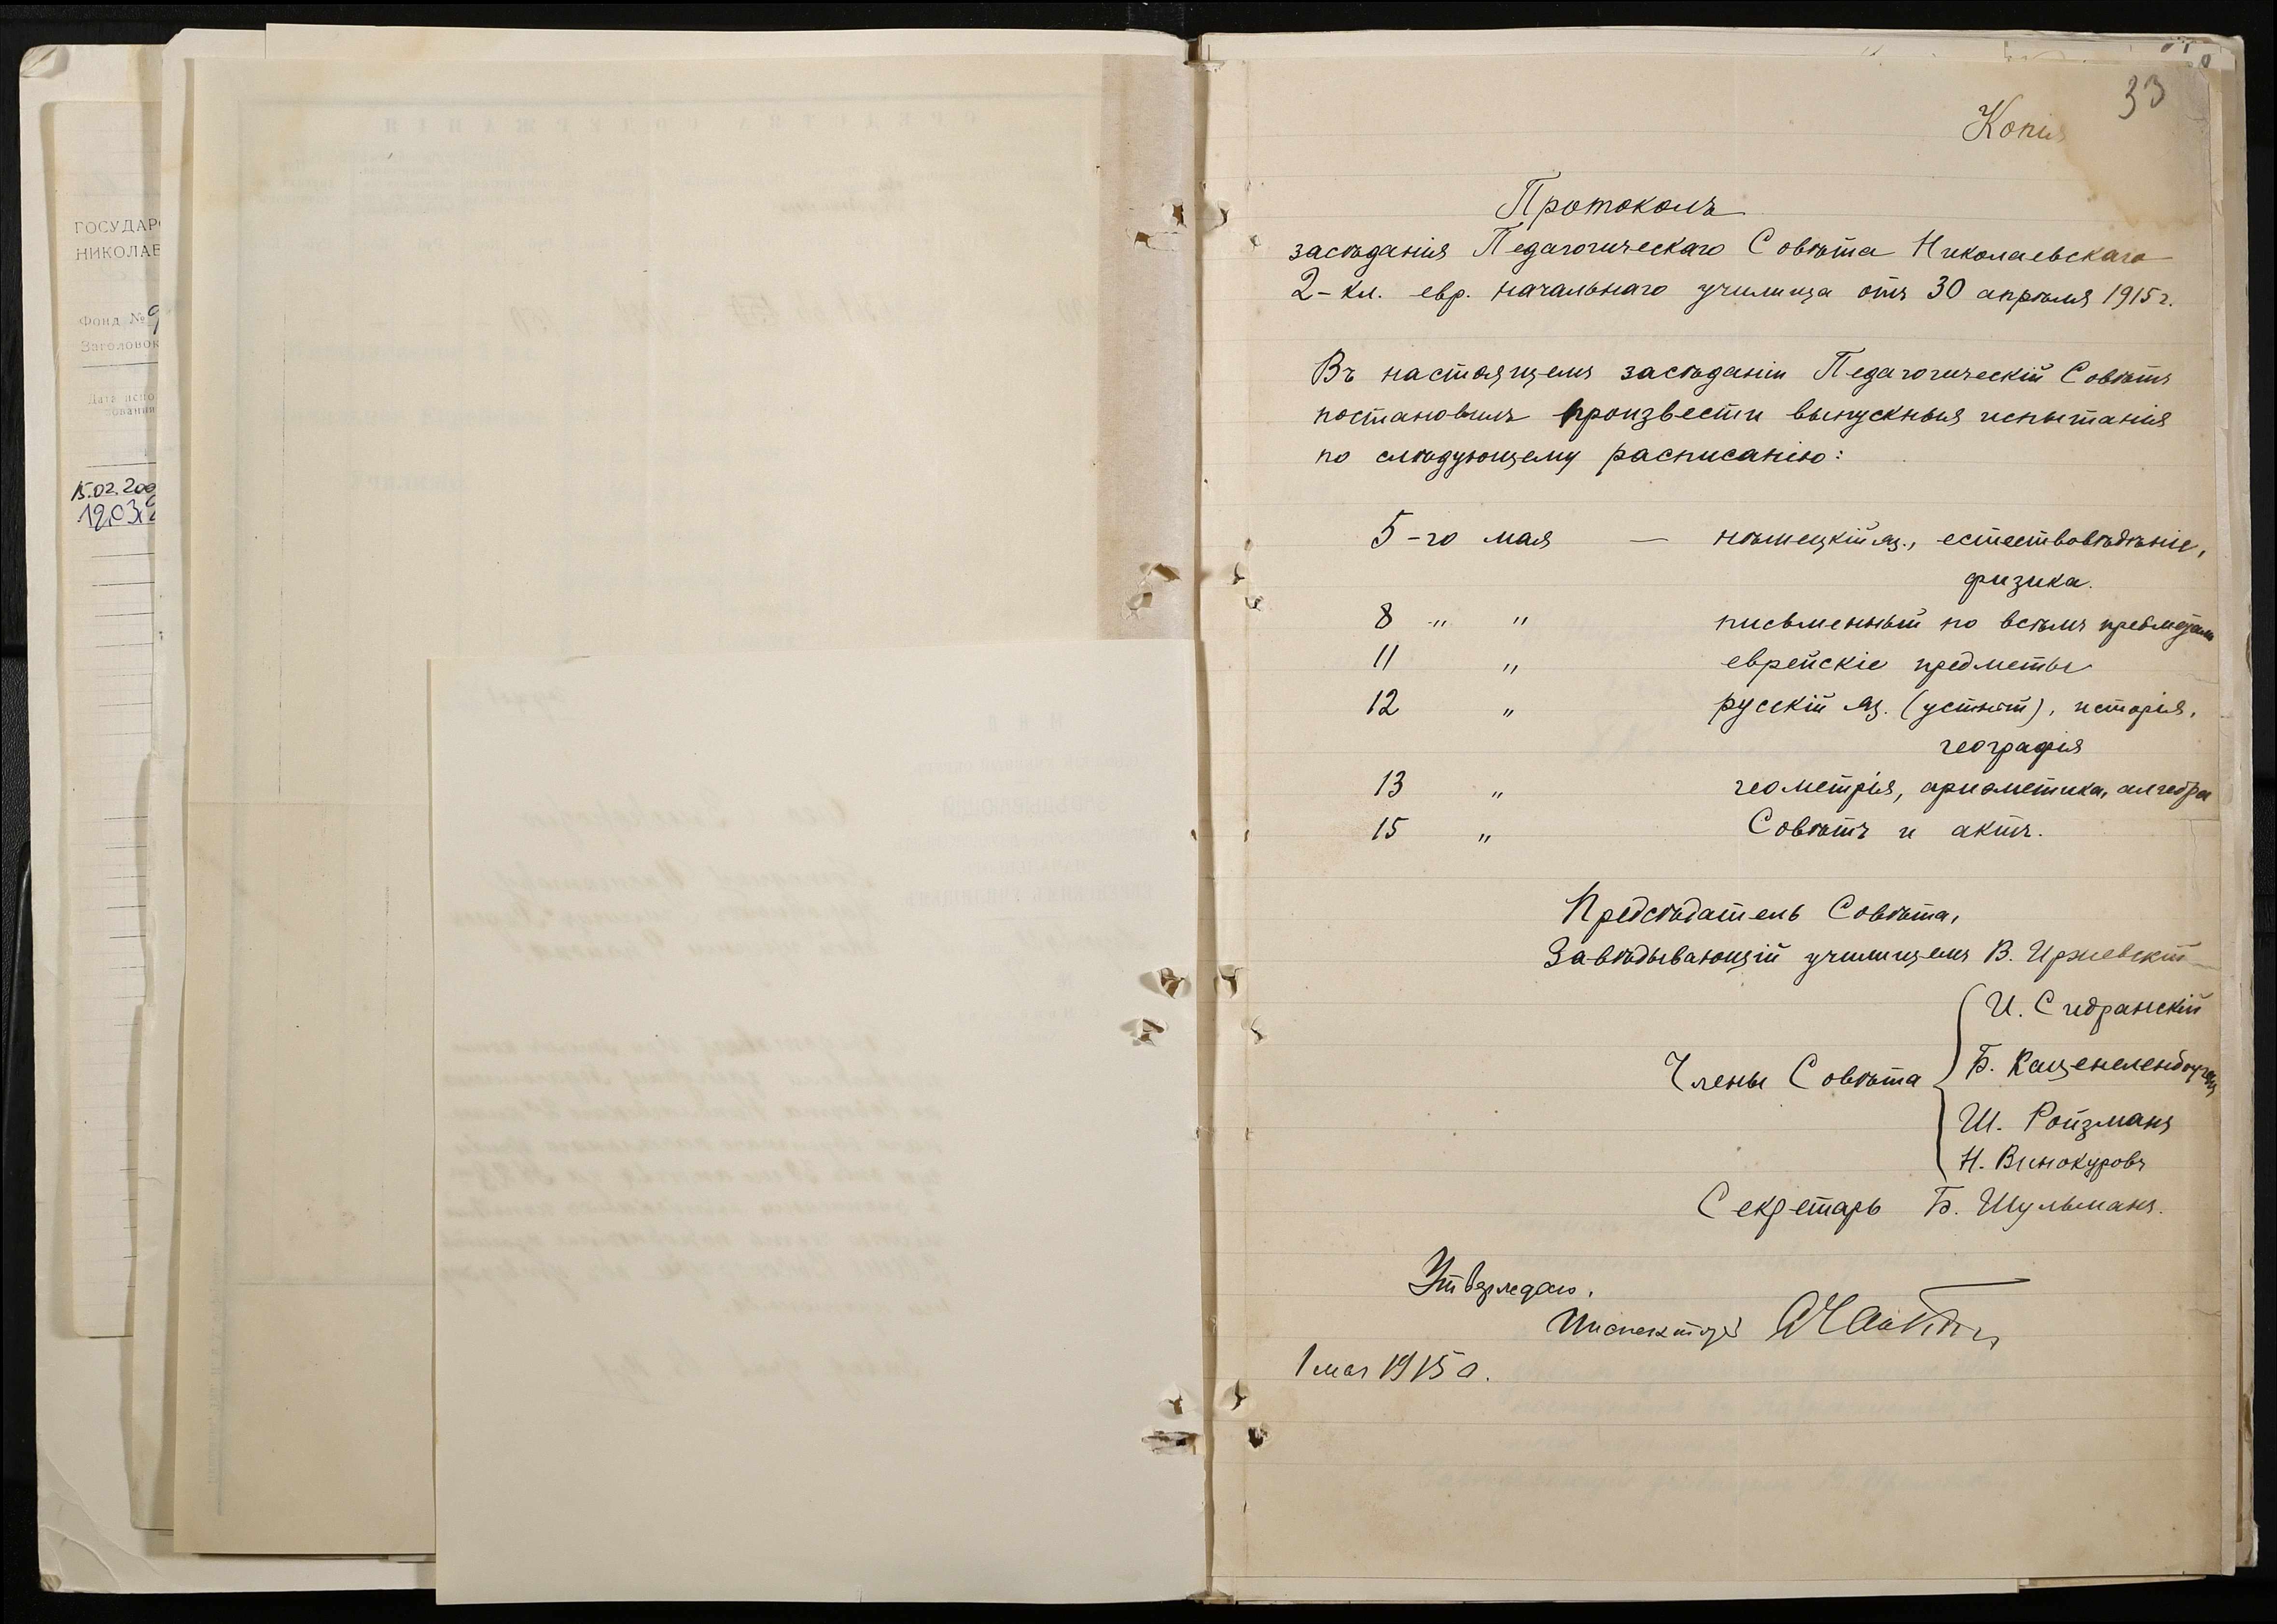 ГОСУДАР
НИКОЛАЕ
Фонд № 9
Заголовок
Дата испо
зовани
15.02.200
19.03.
33
Копія
Протоколъ
засѣданія Педагогическаго Совѣта Николаевскаго
2-кл. евр. начальнаго училища отъ 30 апрѣля 1915 г.
Въ настоящемъ засѣданіи Педагогическій Совѣтъ
постановилъ произвести выпускныя испытанія
по слѣдующему расписанію:
5-го мая — нѣмецкій яз., естествовѣдѣніе,
физика.
8 " " письменный по всѣмъ предметамъ
11 " еврейскіе предметы
12 " русскій яз. (устный), исторія,
географія
13 " геометрія, ариѳметика, алгебра
15 " Совѣтъ и актъ.
Предсѣдатель Совѣта,
Завѣдывающій училищемъ В. Иржевскій
И. Сидранскій
Члены Совѣта Б. Каценеленбогенъ
Ш. Ройзманъ
Н. Винокуровъ
Секретарь Б. Шульманъ.
Утверждаю.
Инспекторъ
1 мая 1915 г.